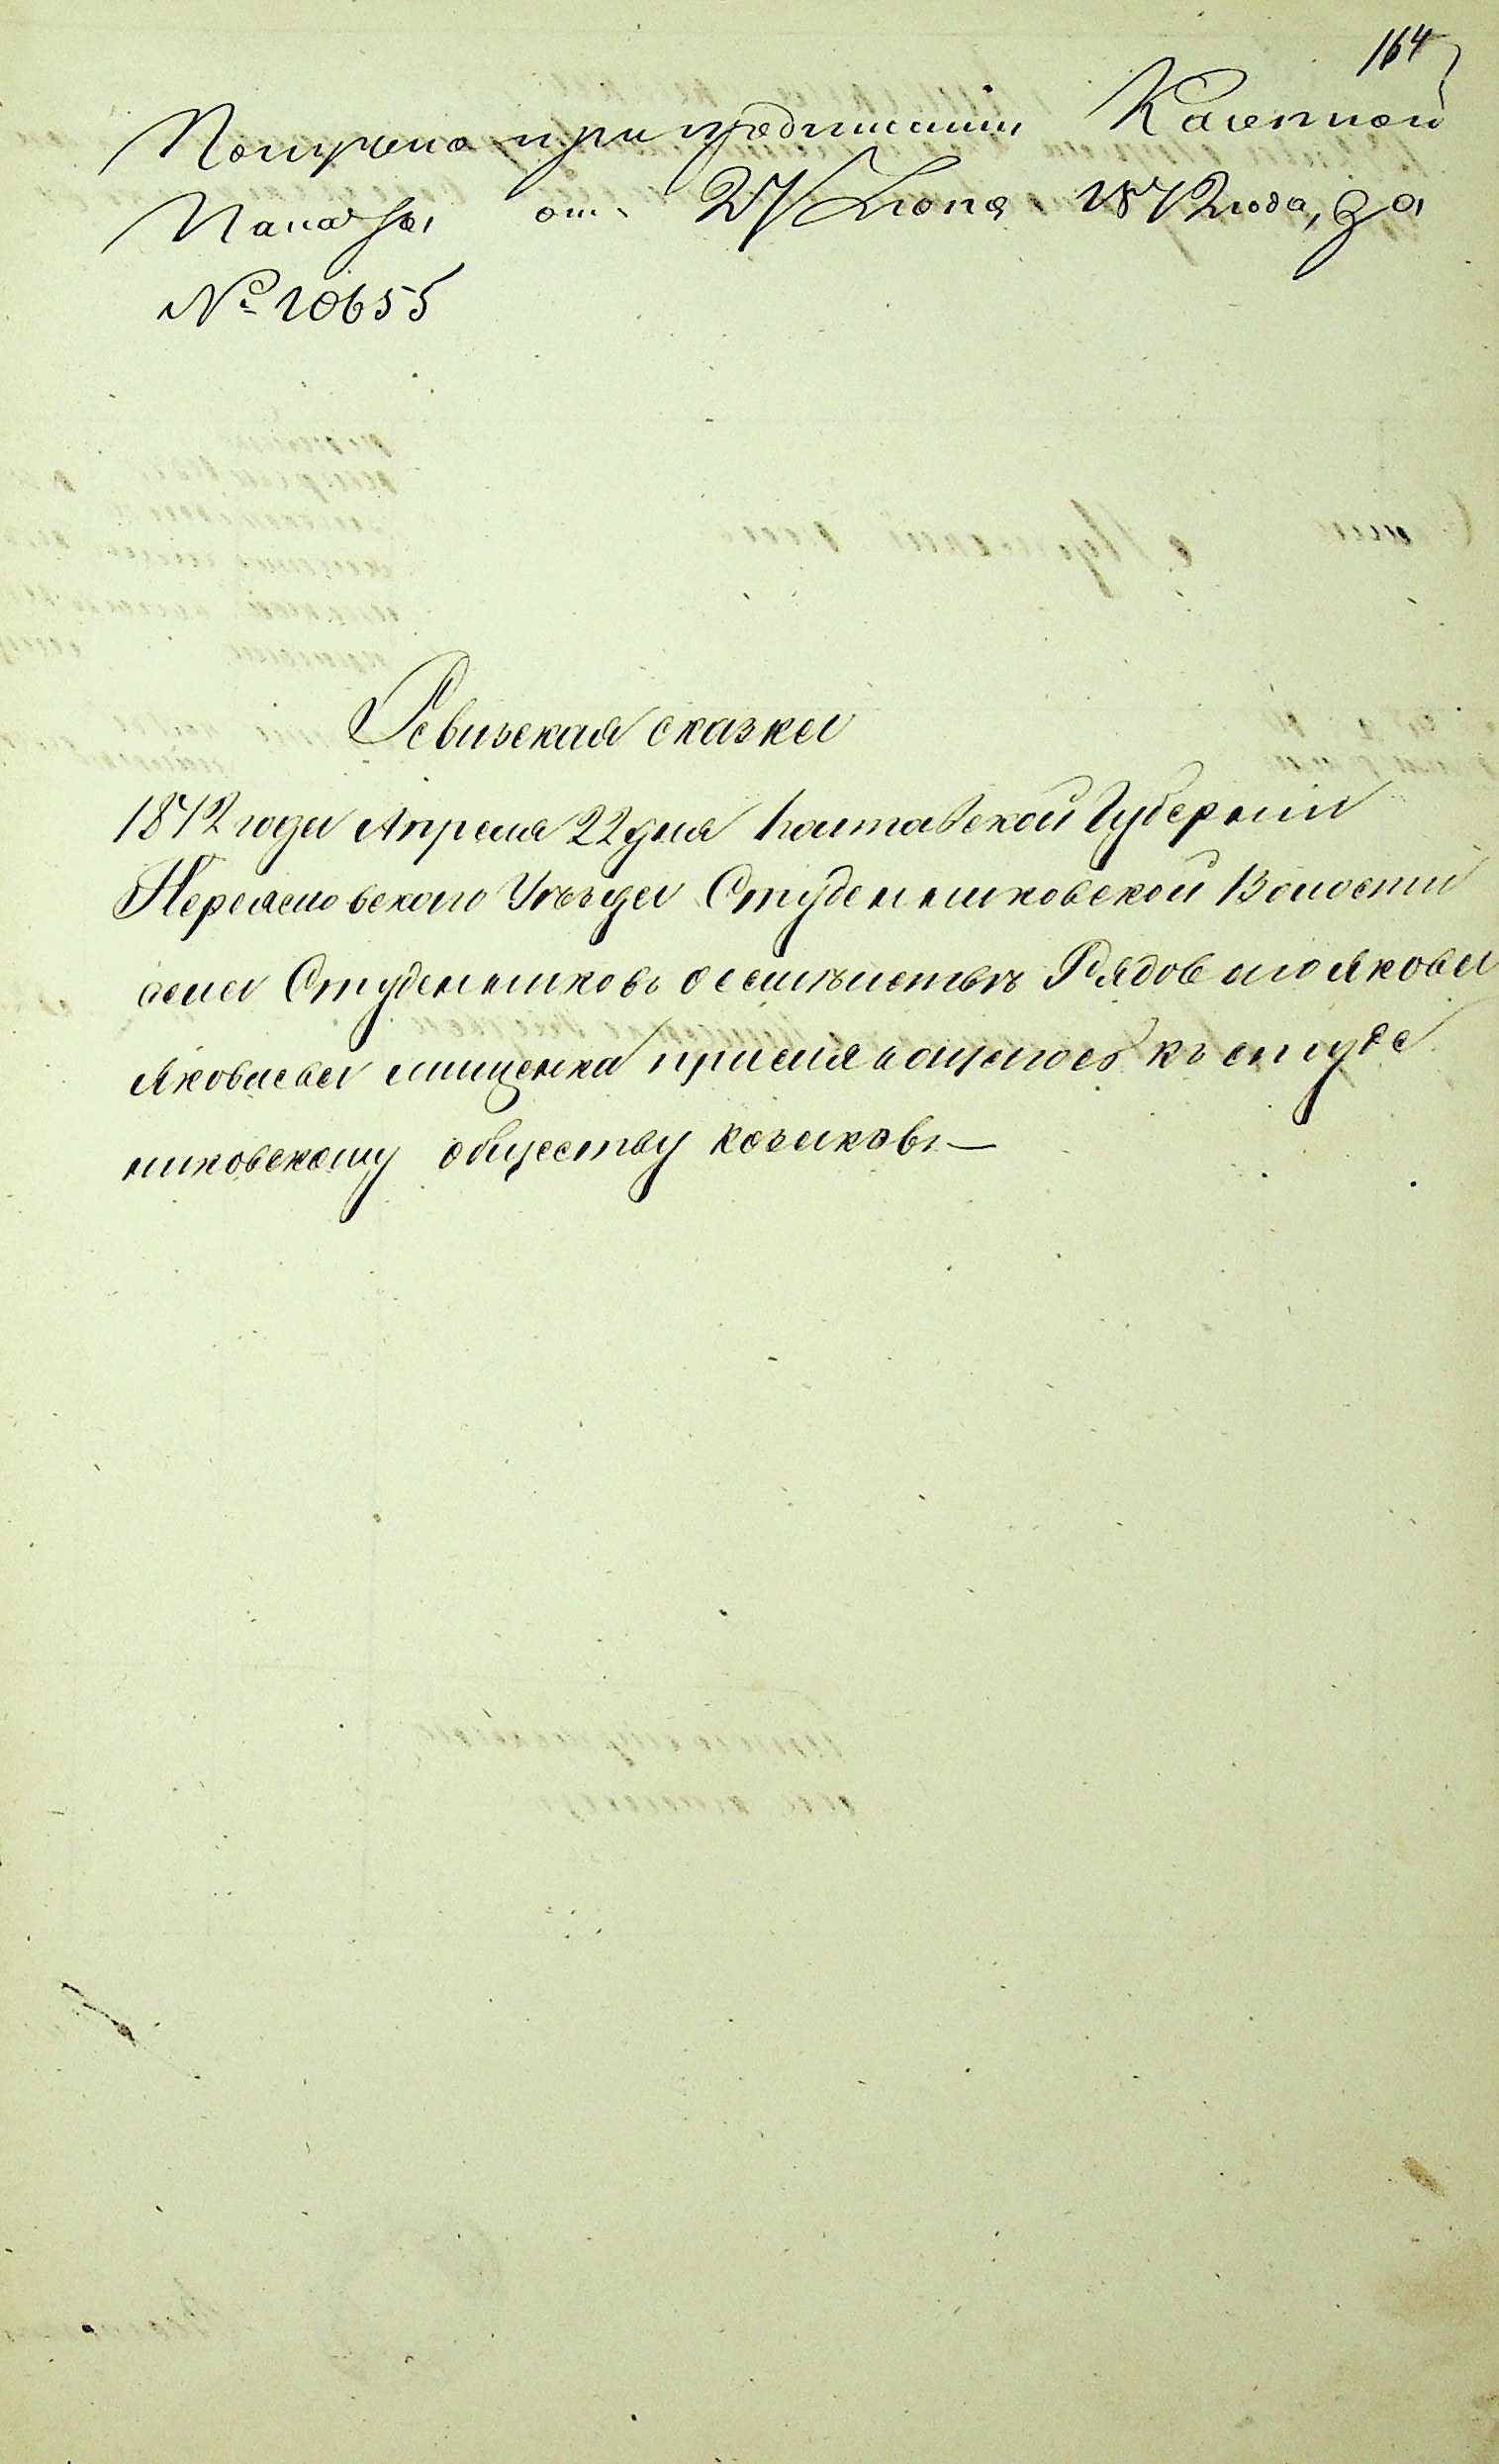 164
Получено при предписании Казенной
Палаты отъ 27 Июня 1872 года, за
№ 10655
Ревизская сказка
1872 года Апреля 22 дня Полтавской Губернии
Переяславского Уѣзда Студениковской Волости
села Студениковъ о семѣйствѣ Рядового Якова
Яковлева мищенка причисляющегося къ студе
никовскому обществу козаковъ —